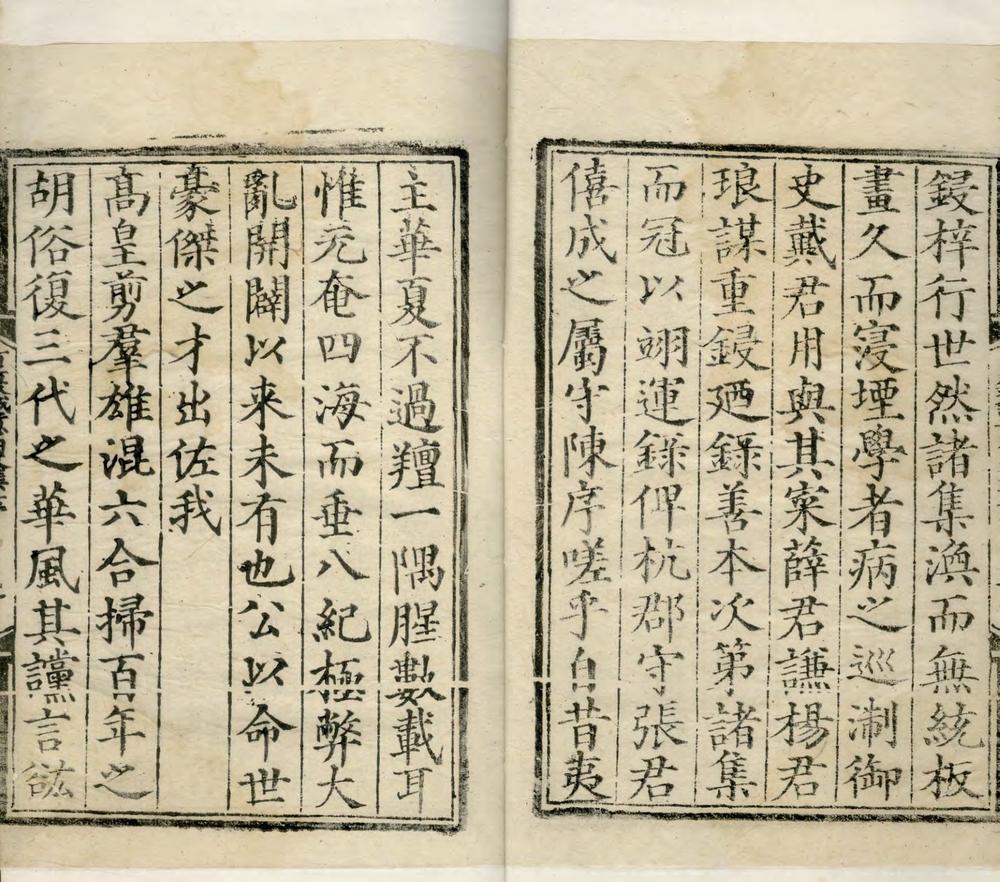 鋟梓行世然諸集渙而無統板
畫久而寖堙學者病之巡淛御
史戴君用與其寀薛君謙楊君
琅謀重鋟廼錄善本次第諸集
而冠以翊運錄俾杭郡守張君
僖成之屬守陳序嗟乎自昔夷
主華夏不過羶一隅腥數載耳
惟元奄四海而垂八紀極弊大
亂開闢以来未有也公以命世
豪傑之才出佐我
髙皇剪羣雄混六合掃百年之
胡俗復三代之華風其讜言